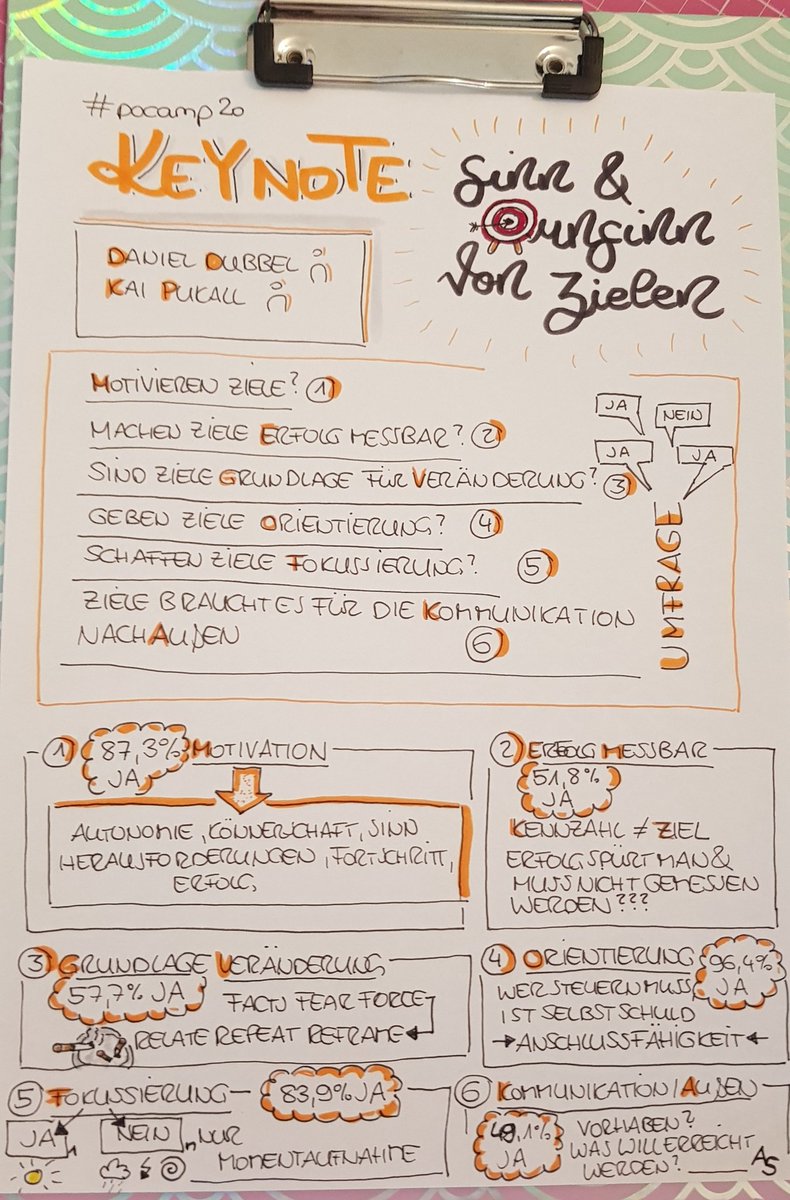 #pocamp20
KEYNOTE
Sinn &
unsinn
von Zielen
DANIEL DUBBEL
KAI PUKALL
MOTIVIEREN ZIELE? 1
MACHEN ZIELE ERFOLG MESSBAR? 2
SIND ZIELE GRUNDLAGE FÜR VERÄNDERUNG? 3
GEBEN ZIELE ORIENTIERUNG? 4
SCHAFFEN ZIELE FOKUSSIERUNG? 5
ZIELE BRAUCHT ES FÜR DIE KOMMUNIKATION
NACH AUßEN 6
JA
NEIN
JA
JA
UMFRAGE
1 87,3% MOTIVATION
JA
AUTONOMIE, KÖNNERSCHAFT, SINN
HERAUSFORDERUNGEN, FORTSCHRITT,
ERFOLG
2 ERFOLG MESSBAR
51,8%
JA
KENNZAHL ≠ ZIEL
ERFOLG SPÜRT MAN &
MUSS NICHT GEMESSEN
WERDEN???
3 GRUNDLAGE VERÄNDERUNG
57,7% JA
FACTS FEAR FORCE
RELATE REPEAT REFRAME
4 ORIENTIERUNG
96,4%
JA
WER STEUERN MUSS,
IST SELBST SCHULD
ANSCHLUSSFÄHIGKEIT
5 FOKUSSIERUNG
83,9% JA
JA NEIN NUR
MOMENTAUFNAHME
6 KOMMUNIKATION/AUßEN
,1%
JA
VORHABEN?
WAS WILL ERREICHT
WERDEN?
AS